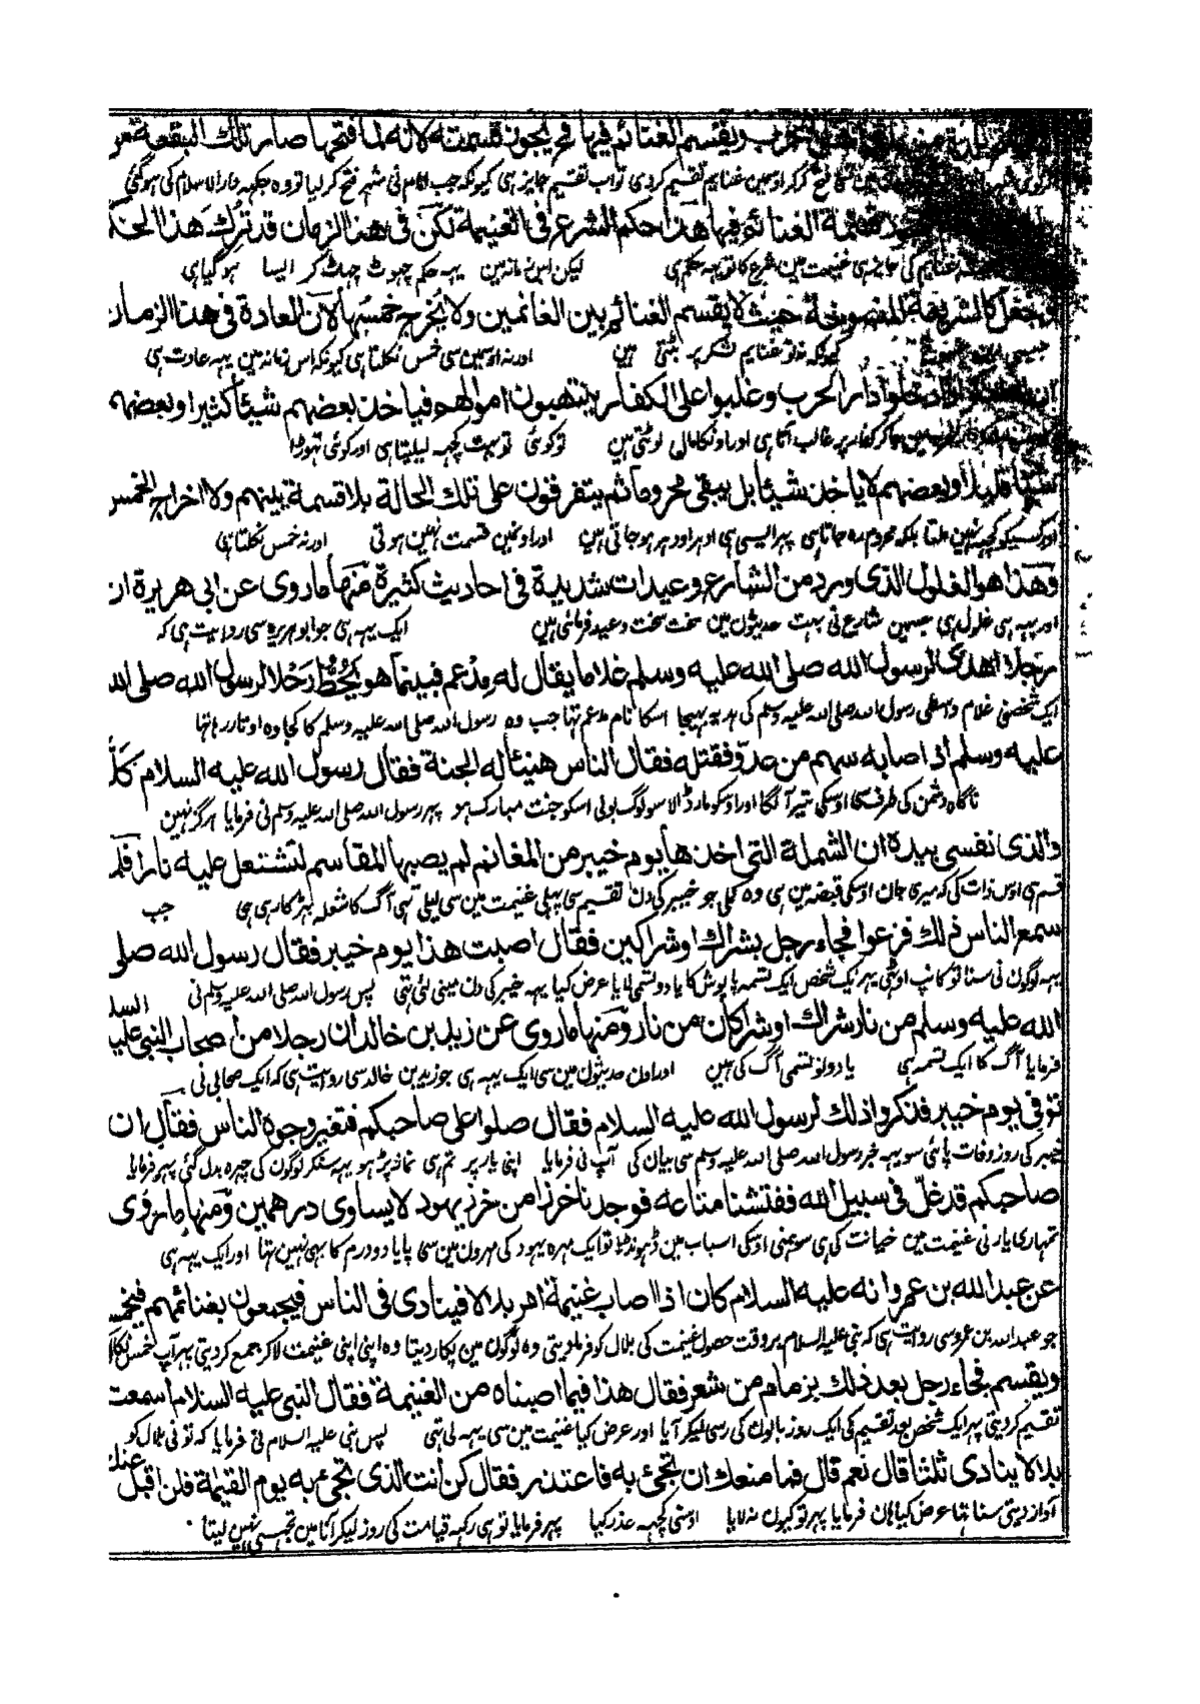 الحرب ويقسم الغنائم فيها فح يجون قسمته لانه لما فتحها صار تلك البقعة من
فتح کر کر اوسمین غنایم تقسیم کردی تو اب تقسیم جایز ہی کیونکہ جب امام نی شہر فتح کر لیا تو وہ جگہہ دار الاسلام کی ہوگئی
قسمة الغنائم فيها هذا حكم الشرع فى الغنيمة لكن فى هذا الزمان قد ترك هذا الحكم
غنایم کی جایز ہی غنیمت مین شرع کا تو یہہ حکم ہی لیکن اس زمانہ مین یہہ حکم چہوٹ چہٹ کر ایسا ہو گیا ہی
وجعل كالشريعة المنسوخة حيث لا يقسم الغنائم بين الغانمين ولا يخرج خمسها لان العادة فى هذا الزمان
کیونکہ نہ تو غنایم لشکر پر بٹتی ہین اور نہ اوسمین سی خمس نکلتا ہی کیونکہ اس زمانہ مین یہہ عادت ہی
دخلوا دار الحرب وغلبوا على الكفار ينتهبون اموالهم فياخذ بعضهم شيئا كثيرا وبعضهم
مین جا کر کفار پر غالب آتا ہی اور اونکا مال لوٹتی ہین تو کوئی تو بہت کچہہ لیلیتا ہی اور کوئی تہوڑا
شيئا قليلا وبعضهم لا ياخذ شيئا بل يبقى محروما ثم يتفرقون على تلك الحالة بلا قسمة بينهم ولا اخراج الخمس
اور کسیکو کچہہ نہین ملتا بلکہ محروم رہ جاتا ہی پہر ایسی ہی اوہر اودہر ہو جاتی ہین اور اونمین قسمت نہین ہوتی اور نہ خمس نکلتا ہی
وهذا هو الغلول الذى ورد من الشارع وعيدات شديدة فى احاديث كثيرة منها ما روى عن ابى هريرة ان
اور یہہ ہی غلول ہی جسمین شارع نی بہت حدیثون مین سخت سخت وعید فرمائی ہین ایک یہہ ہی جو ابو ہریرہ سی روایت ہی کہ
رجلا اهدى لرسول الله صلى الله عليه وسلم غلاما يقال له مدعم فبينما هو يحط رحلا لرسول الله صلى الله
ایک شخص نی غلام واسطی رسول اللہ صلی اللہ علیہ وسلم کی ہدیہ بہیجا اسکا نام مدعم تہا جب وہ رسول اللہ صلی اللہ علیہ وسلم کا کجاوہ اوتار رہا تہا
عليه وسلم اذ اصابه سهم من عدو فقتله فقال الناس هنيئا له الجنة فقال رسول الله عليه السلام كلا
ناگاہ دشمن کی طرف کا اوسکی تیر آ لگا اور اوسکو مار ڈالا سو لوگ بولی اسکو جنت مبارک ہو پہر رسول اللہ صلی اللہ علیہ وسلم نی فرمایا ہرگز نہین
والذى نفسى بيده ان الشملة التى اخذها يوم خيبر من المغانم لم يصبها المقاسم لتشتعل عليه نارا فلما
قسم ہی اوس ذات کی کہ میری جان اوسکی قبضہ مین ہی وہ کملی جو خیبر کی دن تقسیم سی پہلی غنیمت مین سی لیلی تہی آگ کا شعلہ بہڑکا رہی ہی جب
سمع الناس ذلك فزعوا فجاء رجل بشراك او شراكين فقال اصبت هذا يوم خيبر فقال رسول الله صلى
یہہ لوگون نی سنا تو کانپ اوٹہی پہر ایک شخص ایک تسمہ پاپوش کا یا دو تسمی لایا عرض کیا یہہ خیبر کی دن مینی لئی تہی پس رسول اللہ صلی اللہ علیہ وسلم نی
الله عليه وسلم من نار شراك او شراكان من نار ومنها ما روى عن زيد بن خالد ان رجلا من اصحاب النبى عليه السلا
فرمایا آگ کا ایک تسمہ ہی یا دونو تسمی آگ کی ہین اور اون حدیثون مین سی ایک یہہ ہی جو زید بن خالد سی روایت ہی کہ ایک صحابی نی
توفى يوم خيبر فذكروا ذلك لرسول الله عليه السلام فقال صلوا على صاحبكم فتغير وجوه الناس فقال ان
خیبر کی روز وفات پائی سو یہہ خبر رسول اللہ صلی اللہ علیہ وسلم سی بیان کی آپ نی فرمایا اپنی یار پر تم ہی نماز پڑہو یہہ سنکر لوگون کی چہرہ بدل گئی پہر فرمایا
صاحبكم قد غل فى سبيل الله ففتشنا متاعه فوجدنا خرزا من خرز يهود لا يساوى درهمين ومنها ما روى
تمہاری یار نی غنیمت مین خیانت کی ہی سو ہمنی اوسکی اسباب مین ڈہونڈا تو ایک مہرہ یہود کی مہرون مین سی پایا دو درم کا بہی نہین تہا اور ایک یہہ ہی
عن عبد الله بن عمرو انه عليه السلام كان اذا اصاب غنيمة امر بلالا فينادى فى الناس فيجيئون بغنائمهم فيخمسه
جو عبد اللہ بن عمرو سی روایت ہی کہ نبی علیہ السلام ہر وقت حصول غنیمت کی بلال کو فرما دیتی وہ لوگون مین پکار دیتا وہ اپنی اپنی غنیمت لاکر جمع کر دیتی پہر آپ خمس نکالا
ويقسم فجاء رجل بعد ذلك بزمام من شعر فقال هذا فيما اصبناه من الغنيمة فقال النبى عليه السلام اسمعت
تقسیم کر دیتی پہر ایک شخص بعد تقسیم کی ایک روز بالون کی رسی لیکر آیا اور عرض کیا غنیمت مین سی یہہ لی تہی پس نبی علیہ السلام نی فرمایا کہ تونی بلال کو
بلالا ينادى ثلثا قال نعم قال فما منعك ان تجئ به فاعتذر فقال كن انت الذى تجئ به يوم القيمة فلن اقبل عنك
آواز دیتی سنا تہا عرض کیا ہان فرمایا پہر تو کیون نہ لایا اوسنی کچہہ عذر کیا پہر فرمایا تو ہی رکہہ قیامت کی روز لیکر آنا مین تجہسی نہین لیتا